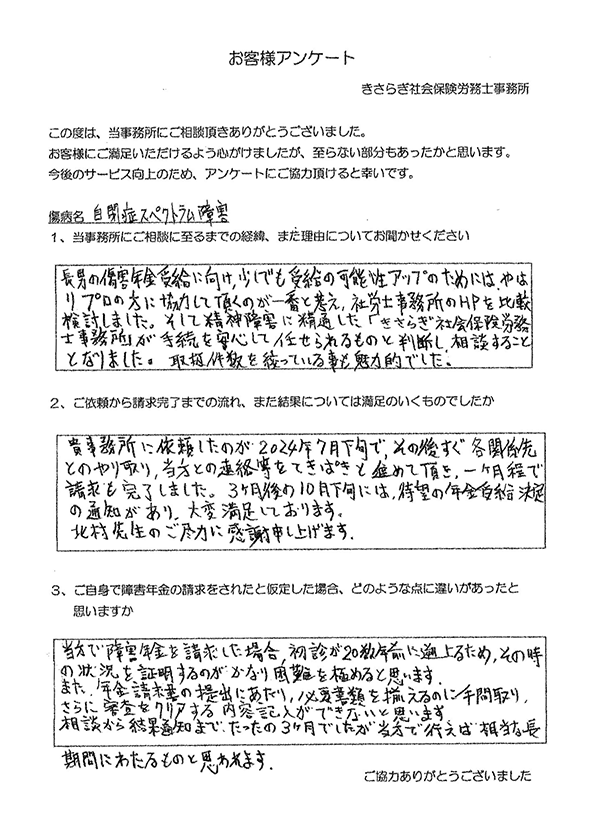 お客様アンケート
きさらぎ社会保険労務士事務所
この度は、当事務所にご相談頂きありがとうございました。
お客様にご満足いただけるよう心がけましたが、至らない部分もあったかと思います。
今後のサービス向上のため、アンケートにご協力頂けると幸いです。
傷病名 自閉症スペクトラム障害
1、当事務所にご相談に至るまでの経緯、また理由についてお聞かせください
長男の傷害年金受給に向け、少しでも受給の可能性アップのためには、やは
りプロの方に協力して頂くのが一番と考え、社労士事務所のHPを比較
検討しました。そして精神障害に精通した「きさらぎ社会保険労務
士事務所」が手続を安心して任せられるものと判断し、相談すること
となりました。取扱件数を絞っている事も魅力的でした。
2、ご依頼から請求完了までの流れ、また結果については満足のいくものでしたか
貴事務所に依頼したのが2024年7月下旬で、その後すぐ各関係先
とのやり取り、当方との連絡等をてきぱきと進めて頂き、一ヶ月程で
請求も完了しました。3ヶ月後の10月下旬には、待望の年金受給決定
の通知があり、大変満足しております。
北村先生のご尽力に感謝申し上げます。
3、ご自身で障害年金の請求をされたと仮定した場合、どのような点に違いがあったと
思いますか
当方で障害年金を請求した場合、初診が20数年前に遡上るため、その時
の状況を証明するのがかなり困難を極めると思います。
また、年金請求書の提出にあたり、必要書類を揃えるのに手間取り、
さらに審査をクリアする内容記入ができないと思います
相談から結果通知まで、たったの3ヶ月でしたが当方で行えば相当な長
期間にわたるものと思われます。
ご協力ありがとうございました